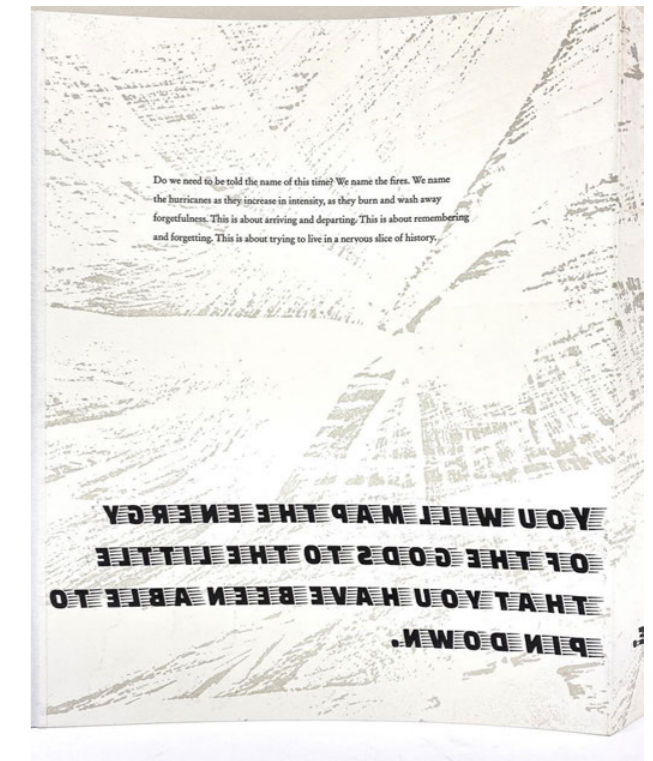 Do we need to be told the name of this time? We name the fires. We name
the hurricanes as they increase in intensity, as they burn and wash away
forgetfulness. This is about arriving and departing. This is about remembering
and forgetting. This is about trying to live in a nervous slice of history.
YOU WILL MAP THE ENERGY
OF THE GODS TO THE LITTLE
THAT YOU HAVE BEEN ABLE TO
PIN DOWN.